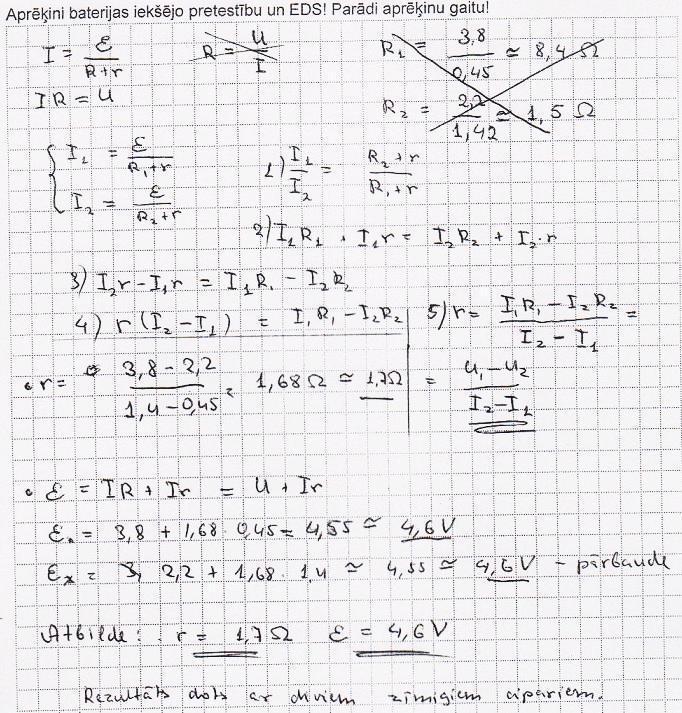 Aprēķini baterijas iekšējo pretestību un EDS! Parādi aprēķinu gaitu!
I = ε / (R + r)
R = U / I
R₁ = 3,8 / 0,45 ≃ 8,4 Ω
IR = U
R₂ = 2,2 / 1,42 ≃ 1,5 Ω
{ I₁ = ε / (R₁ + r)
I₂ = ε / (R₂ + r)
1) I₁ / I₂ = (R₂ + r) / (R₁ + r)
2) I₁R₁ + I₁r = I₂R₂ + I₂·r
3) I₂r − I₁r = I₁R₁ − I₂R₂
4) r (I₂ − I₁) = I₁R₁ − I₂R₂
5) r = (I₁R₁ − I₂R₂) / (I₂ − I₁) =
= (U₁ − U₂) / (I₂ − I₁)
• r = (3,8 − 2,2) / (1,4 − 0,45) = 1,68 Ω ≃ 1,7 Ω
• ε = IR + Ir = U + Ir
ε₁ = 3,8 + 1,68 · 0,45 = 4,55 ≃ 4,6 V
εₓ = 2,2 + 1,68 · 1,4 ≃ 4,55 ≃ 4,6 V – pārbaude
Atbilde: r = 1,7 Ω ε = 4,6 V
Rezultāts dots ar diviem zīmīgiem cipariem.